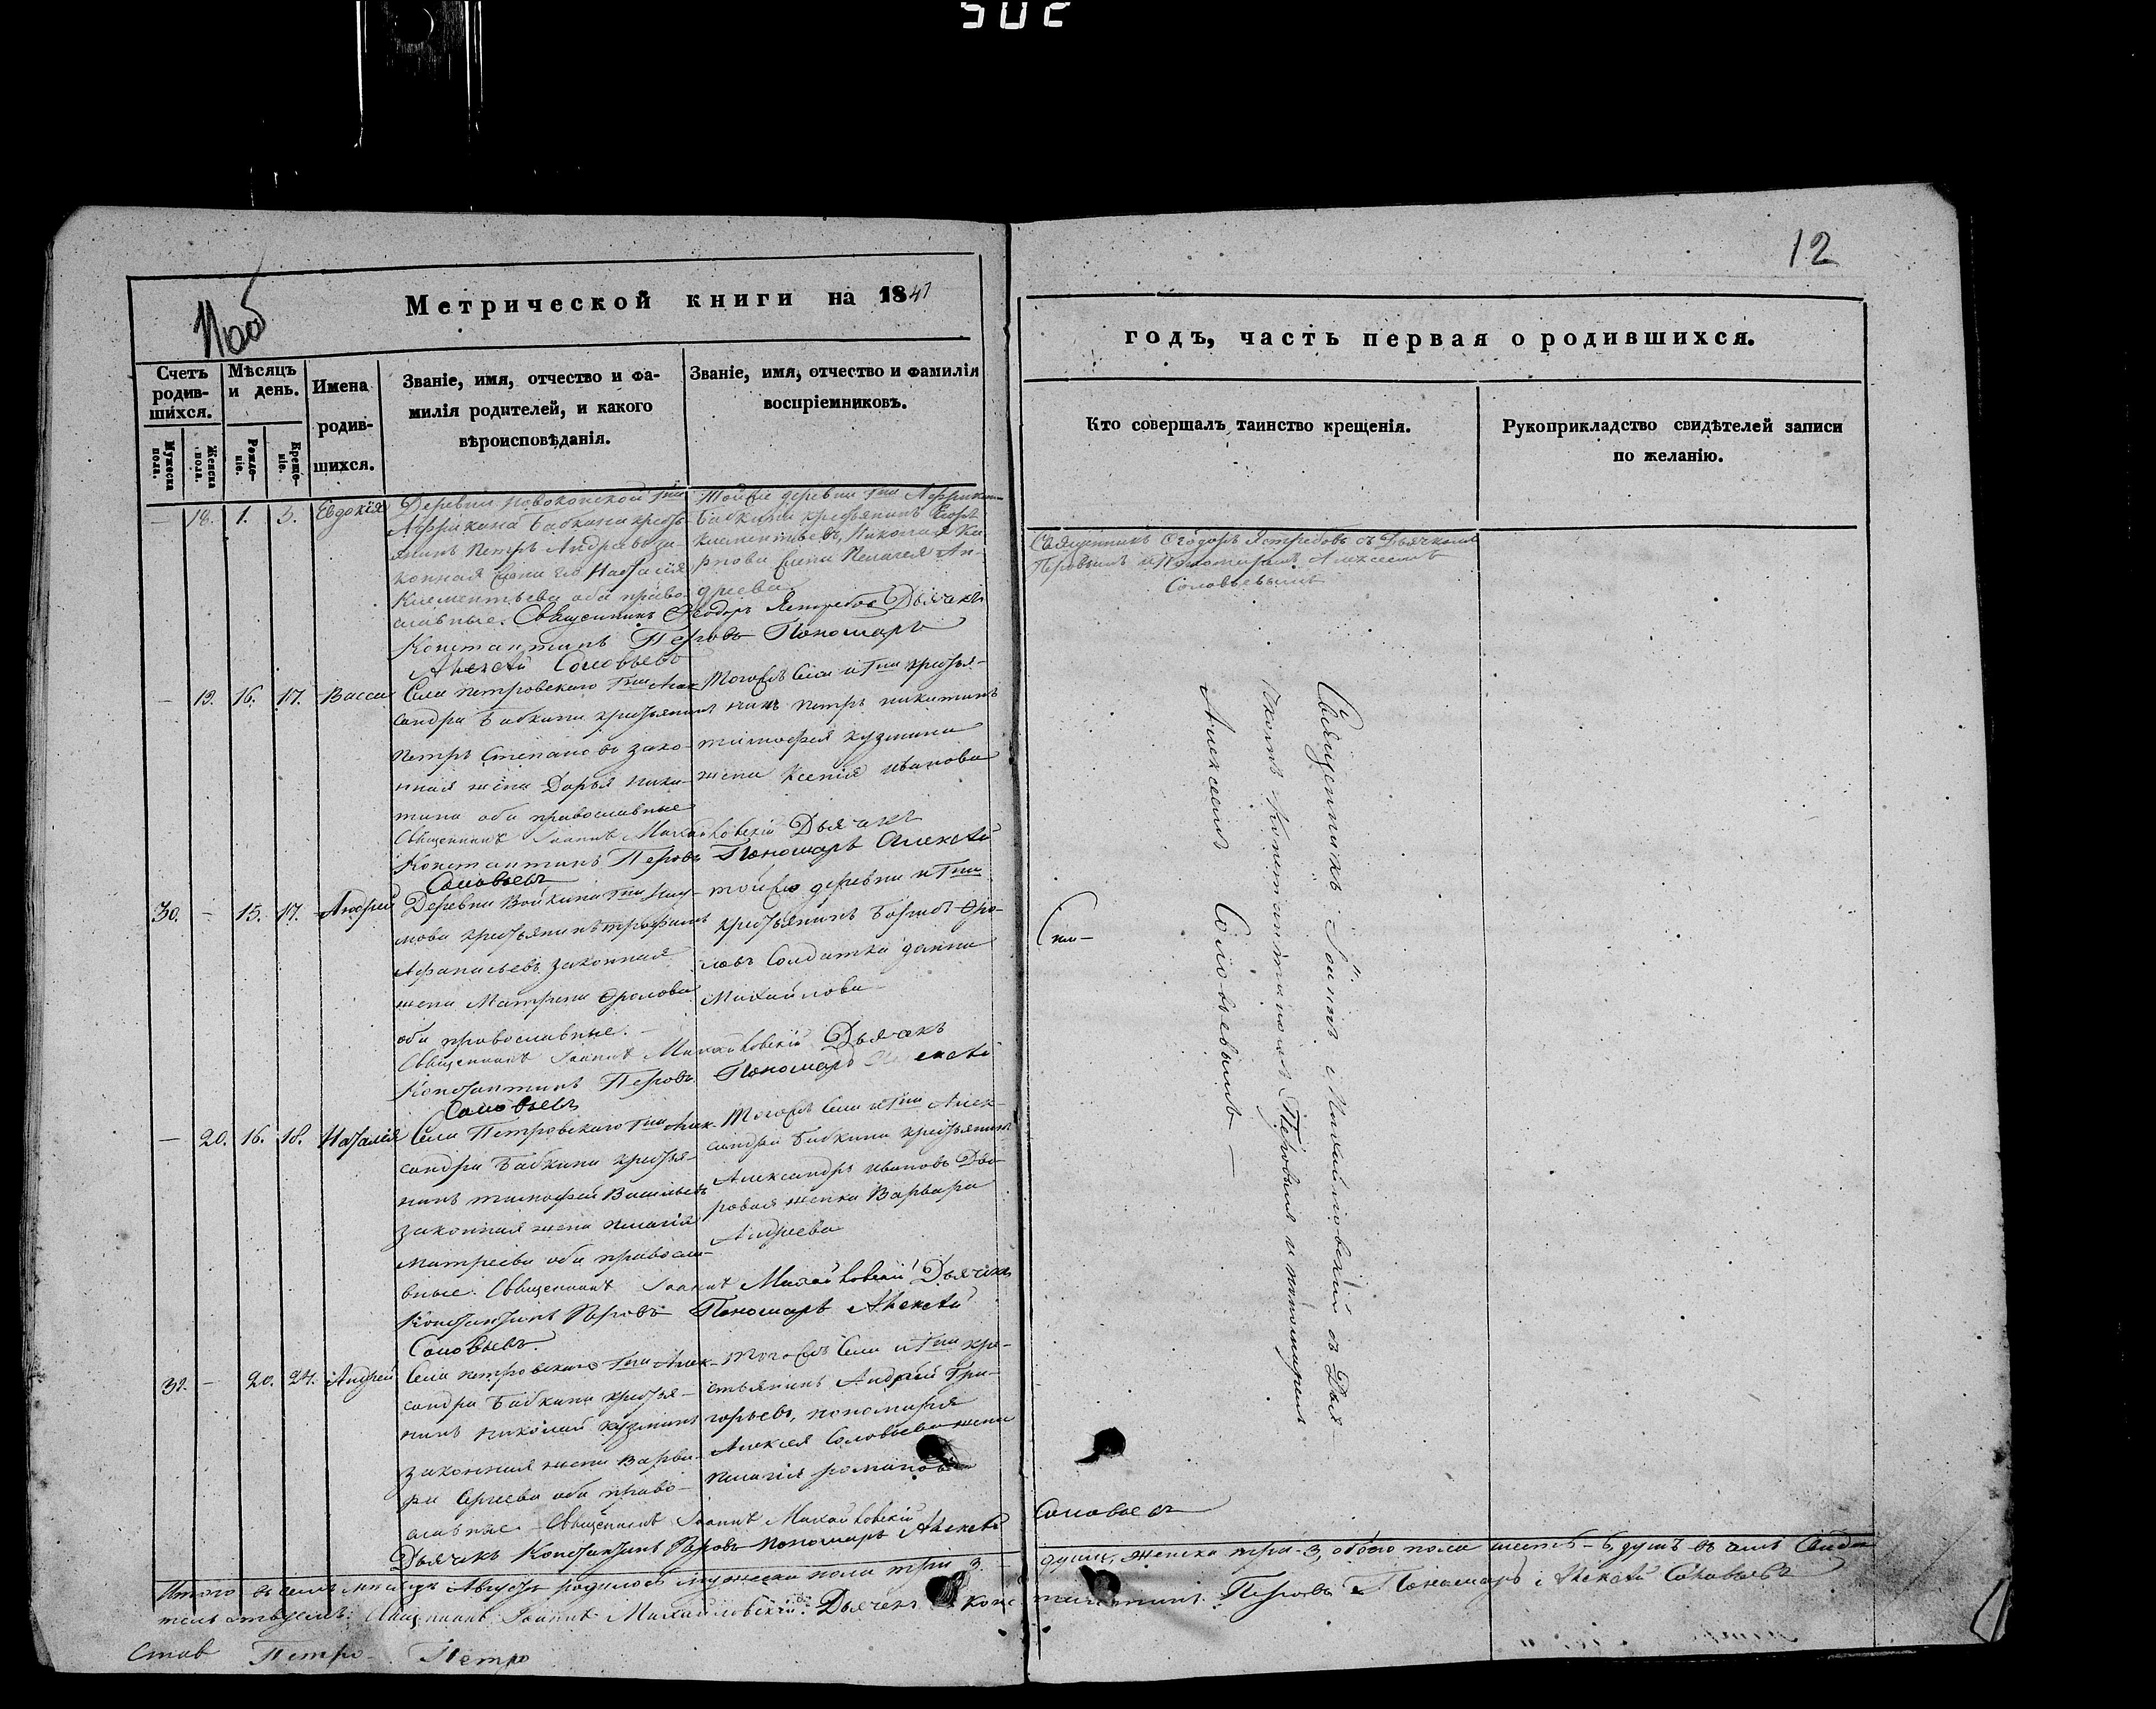 502
12
11об
Метрической книги на 1847
годъ, часть первая о родившихся.
Счетъ родив-шихся.
Мѣсяцъ и день.
Имена родив-шихся.
Званіе, имя, отчество и фа-
милія родителей, и какого
вѣроисповѣданія.
Званіе, имя, отчество и фамилія
воспріемниковъ.
Кто совершалъ таинство крещенія.
Рукоприкладство свидѣтелей записи
по желанію.
Мужеска пола.
Женска пола.
Рожде-ніе.
Креще-ніе.
— 18. 1. 3. Евдокія
Деревни
Африкана Бабкина кресть
янинъ Петръ Андреевъ за-
конная жена его Наталія
Климентьева оба право-
славные. Священникъ Ѳеодоръ Ястребовъ Дьячекъ
Константинъ Перовъ Пономарь
Алексѣй Соловьевъ
Той же деревни Гна Африкана
Бабкина крестьянинъ
Климентьевъ, Николая Ка
рпова жена Пелагея Ан-
дреева
Священникъ Ѳеодоръ Ястребовъ съ Дьячкомъ
Перовымъ и Пономаремъ Алексеемъ
Соловьевымъ
— 19. 16. 17. Васса
Села Петровскаго Гна Алек
сандра Бабкина крестьянинъ
Петръ Степановъ зако-
нная жена Дарья Ники-
тина оба православные
Священникъ Іоаннъ Михайловскій Дьячекъ
Константинъ Перовъ Пономарь Алексѣй
Соловьевъ
Тогожъ Села и Гна крестья-
нинъ Петръ Никитинъ
Тимофея Кузмина
жена Ксенія Иванова
30. — 15. 17. Андрей
Деревни Войкина Гна
мова крестьянинъ Трофимъ
Афанасьевъ законная
жена Матрена Фролова
оба православные.—
Священникъ Іоаннъ Михайловскій Дьячекъ
Константинъ Перовъ Пономарь Алексѣй
Соловьевъ
той же деревни и Гна
крестьянинъ Борисъ Фро-
ловъ Солдатка
Михайлова
— 20. 16. 18. Наталія
Села Петровскаго Гна Алек-
сандра Бабкина крестья-
нинъ Тимофей Васильевъ
законная жена Пелагія
Матвеева оба правосла-
вные. Священникъ Іоаннъ Михайловскій Дьячекъ
Константинъ Перовъ Пономарь Алексѣй
Соловьевъ.
Тогожъ Села и Гна Алек-
сандра Бабкина крестьянинъ
Александръ Ивановъ Дво
ровая женка Варвара
Андреева
31. — 20. 24. Андрей
Села Петровскаго Гна Алек-
сандра Бабкина крестья-
нинъ Николай Кузминъ
законная жена Варва-
ра Сергеева оба право-
славные Священникъ Іоаннъ Михайловскій
Дьячекъ Константинъ Перовъ Пономарь Алексѣй
Соловьевъ
Тогожъ Села и Гна кре-
стьянинъ Андрей Гри-
горьевъ, пономаря
Алексея Соловьева жена
Пелагія Романова
Священникъ Іоаннъ Михайловскій съ Дья
чкомъ Константиномъ Перовымъ и пономаремъ
Алексеемъ Соловьевымъ —
Итого въ семъ месяцѣ Августѣ родилось мужеска пола три 3 — душъ, женска три-3, обоего пола шесть-6, душъ въ чемъ Свиде
тельствуемъ: Священникъ Іоаннъ Михайловскій. Дьячекъ Константинъ Перовъ Пономарь Алексѣй Соловьевъ
Став Петро- Петро